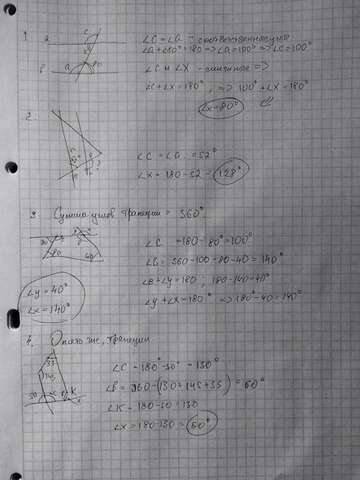 1.
a
c
x
b
a 80
∠C = ∠a - соответственные
∠a+80°=180 => ∠a=100° => ∠C=100°
∠C и ∠X - смежные =>
∠C+∠X=180°, => 100°+∠X=180°
∠x=80°
2.
∠C = ∠a = 52°
∠X = 180-52 = 128°
3. Сумма углов трапеции = 360°
80
40
∠C = 180-80°=100°
∠B = 360-100-80-40 = 140°
∠B+∠y=180; 180-140=40°
∠y+∠X=180° => 180°-40=140°
∠y=40°
∠x=140°
4. Опять же, трапеция
35
145
50
K
x
∠C = 180°-50° = 130°
∠B = 360-(130+145+35) = 50°
∠K = 180-50=130
∠X = 180-130 = 50°